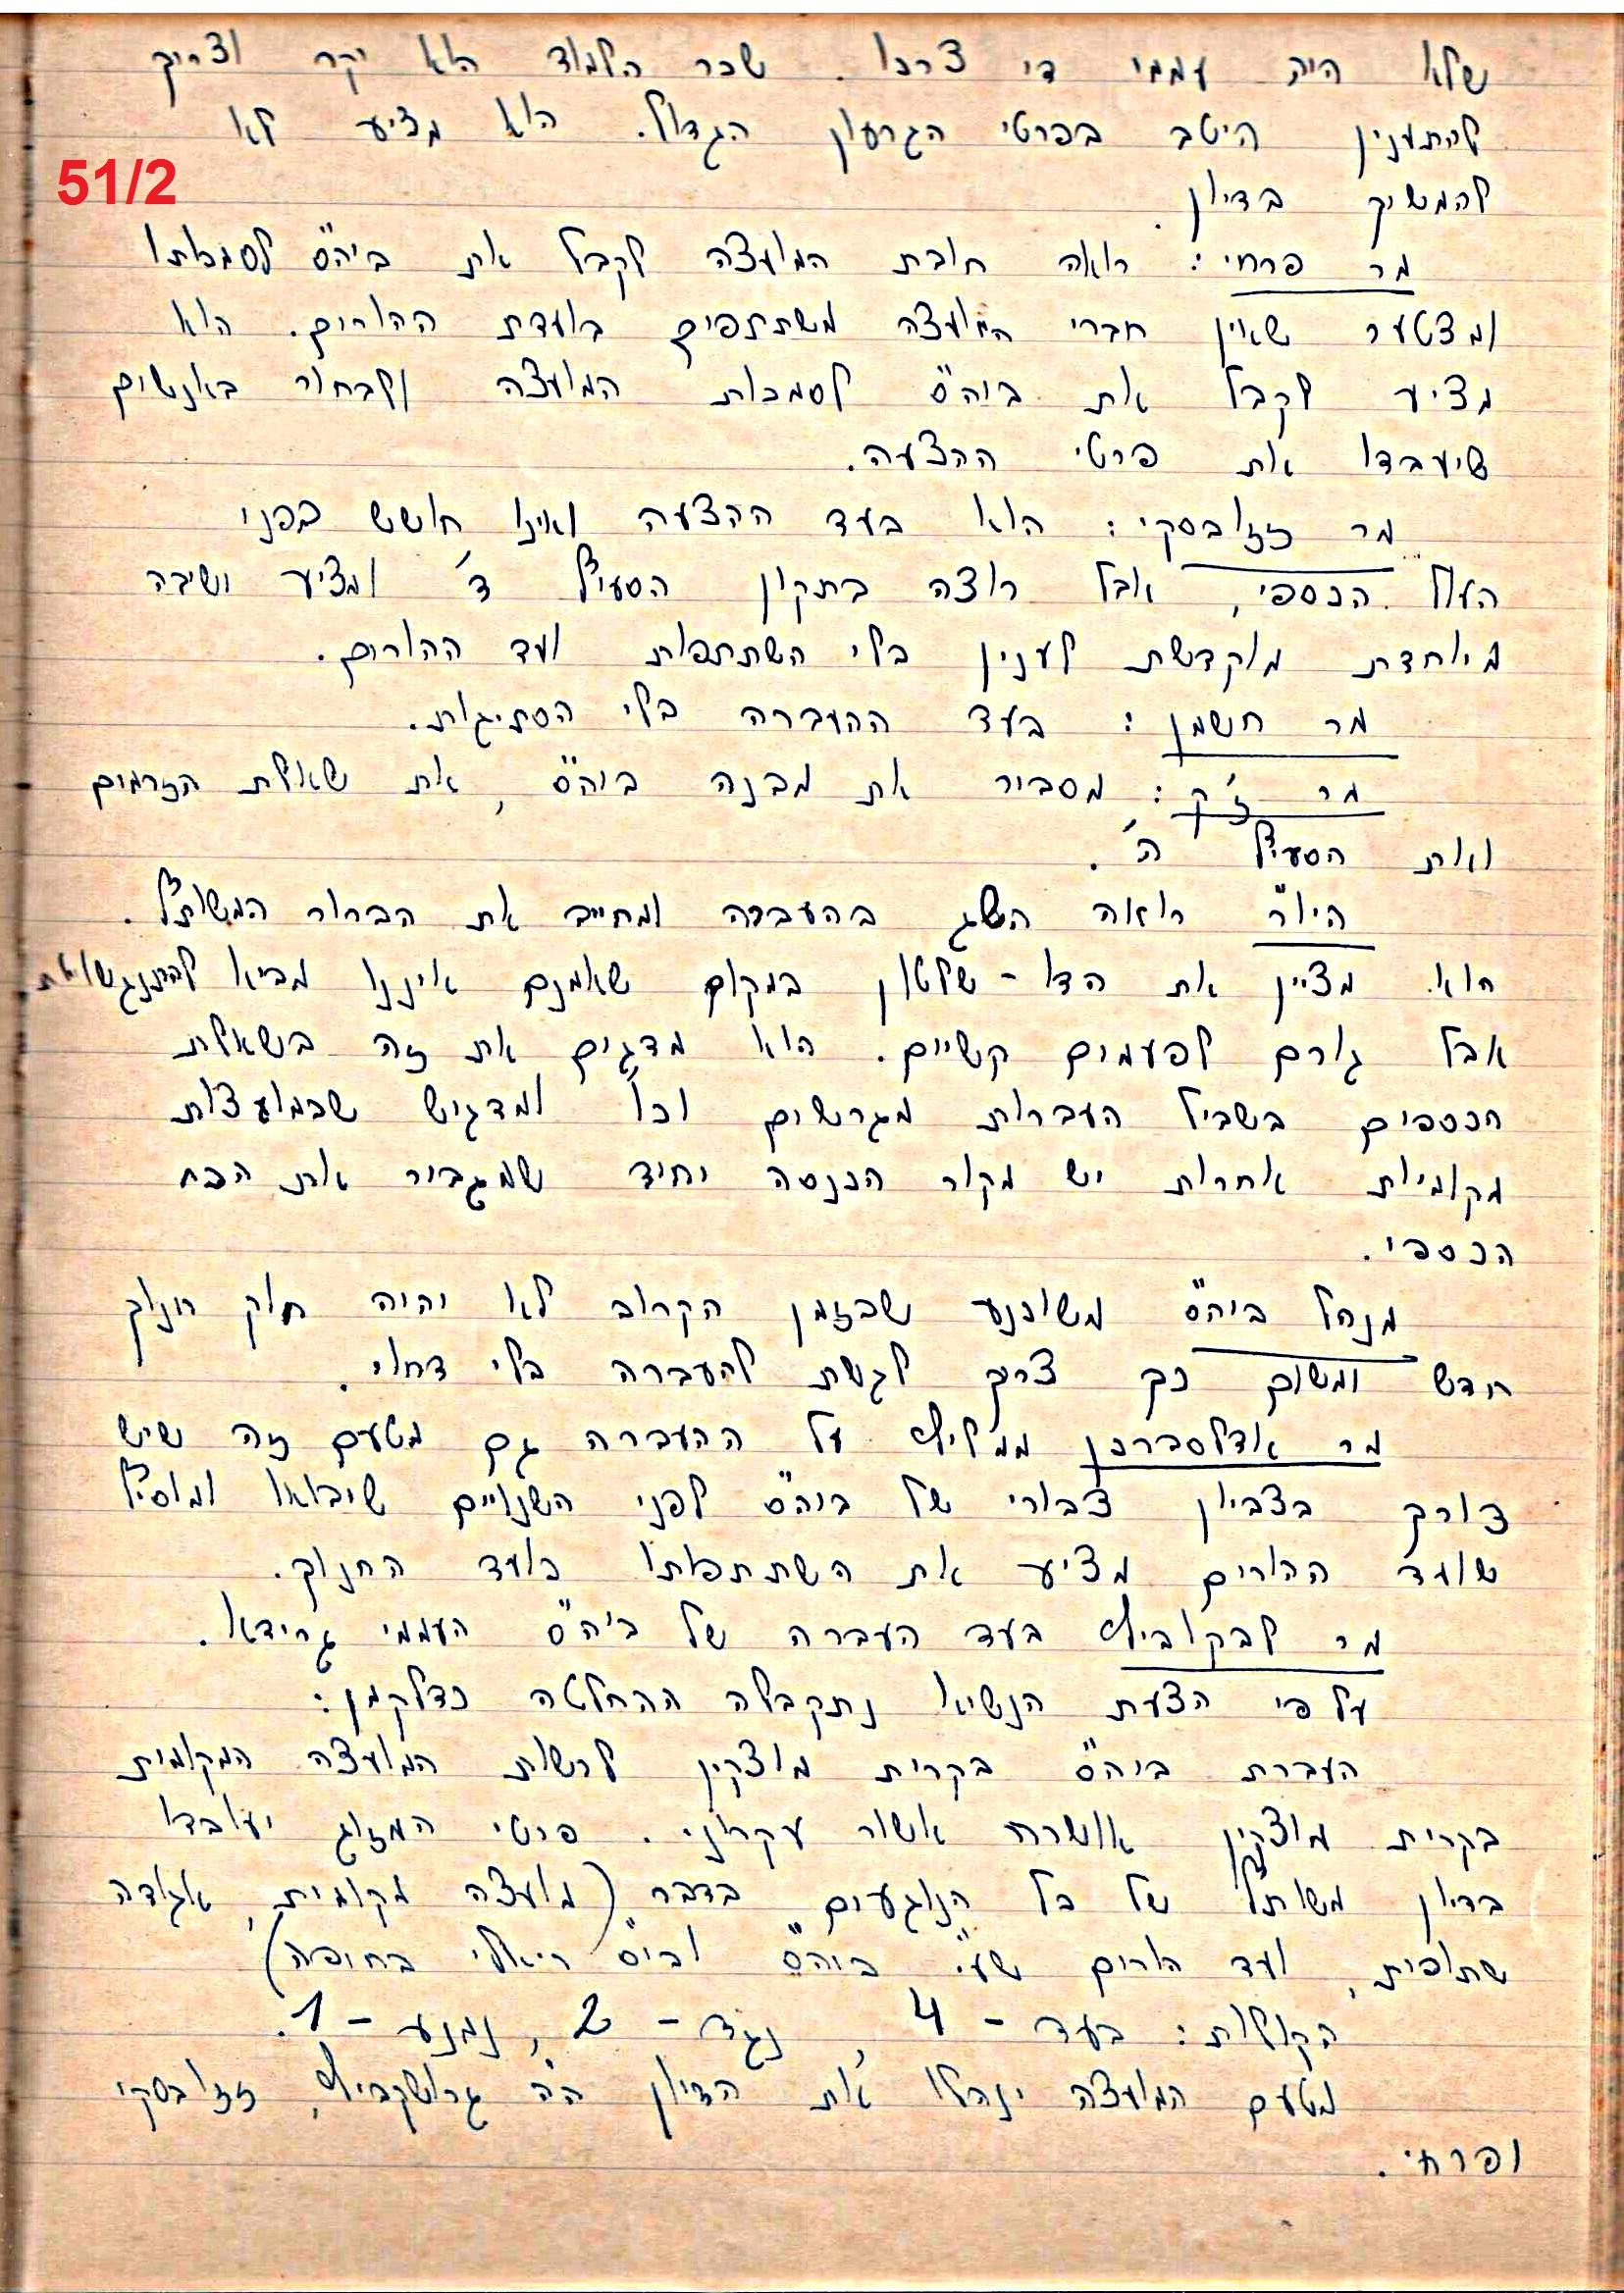 שלא היה עממי די צרכו. שכר הלמוד הוא יקר וצריך
להתענין היטב בפרטי הגרעון הגדול. הוא מציע לא
51/2
להמשיך בדיון.
מר פרחי: רואה חובת המועצה לקבל את ביה"ס לסמכותו
ומצטער שאין חברי המועצה משתתפים בועדת ההורים. הוא
מציע לקבל את ביה"ס לסמכות המועצה ולבחור באנשים
שיעבדו את פרטי ההצעה.
מר כזובסקי: הוא בעד ההצעה ואינו חושש בפני
העול הכספי, אבל רוצה בתקון הסעיף ד' ומציע ישיבה
מיוחדת מוקדשת לענין בלי השתתפות ועד ההורים.
מר חשמן: בעד ההעברה בלי הסתיגות.
מר ז'ק: מסביר את מבנה ביה"ס, את שאלת הזרמים
ואת הסעיף ה'.
היו"ר רואה השג בהעברה ומחייב את הברור המשותף.
הוא מציין את הדו-שלטון במקום שאמנם איננו מביא להתנגשויות
אבל גורם לפעמים קשיים. הוא מדגים את זה בשאלת
הכספים בשביל העברות מגרשים וכו' ומדגיש שבמועצות
מקומיות אחרות יש מקור הכנסה יחיד שמגביר את הכח
הכספי.
מנהל ביה"ס משוכנע שבזמן הקרוב לא יהיה חוק חינוך
חדש ומשום כך צריך לגשת להעברה בלי דחוי.
מר אדלסברכן ממליץ על ההעברה גם מטעם זה שיש
צורך בצביון צבורי של ביה"ס לפני השנויים שיבואו ומוסיף
שועד ההורים מציע את השתתפותו בועד החנוך.
מר לבקוביץ בעד העברה של ביה"ס העממי גרידא.
על פי הצעת הנשיא נתקבלה ההחלטה כדלקמן:
העברת ביה"ס בקרית מוצקין לרשות המועצה המקומית
בקרית מוצקין אושרה אשור עקרוני. פרטי המזוג יעובדו
בדיון משותף של כל הנוגעים בדבר (מועצה מקומית, אגודה
שתופית, ועד הורים שע"י ביה"ס וביה"ס ריאלי בחיפה)
הקולות: בעד - 4, נגד - 2, נמנע - 1.
מטעם המועצה ינהלו את הדיון ה"ה גרושקביץ, כזובסקי
ופרחי.